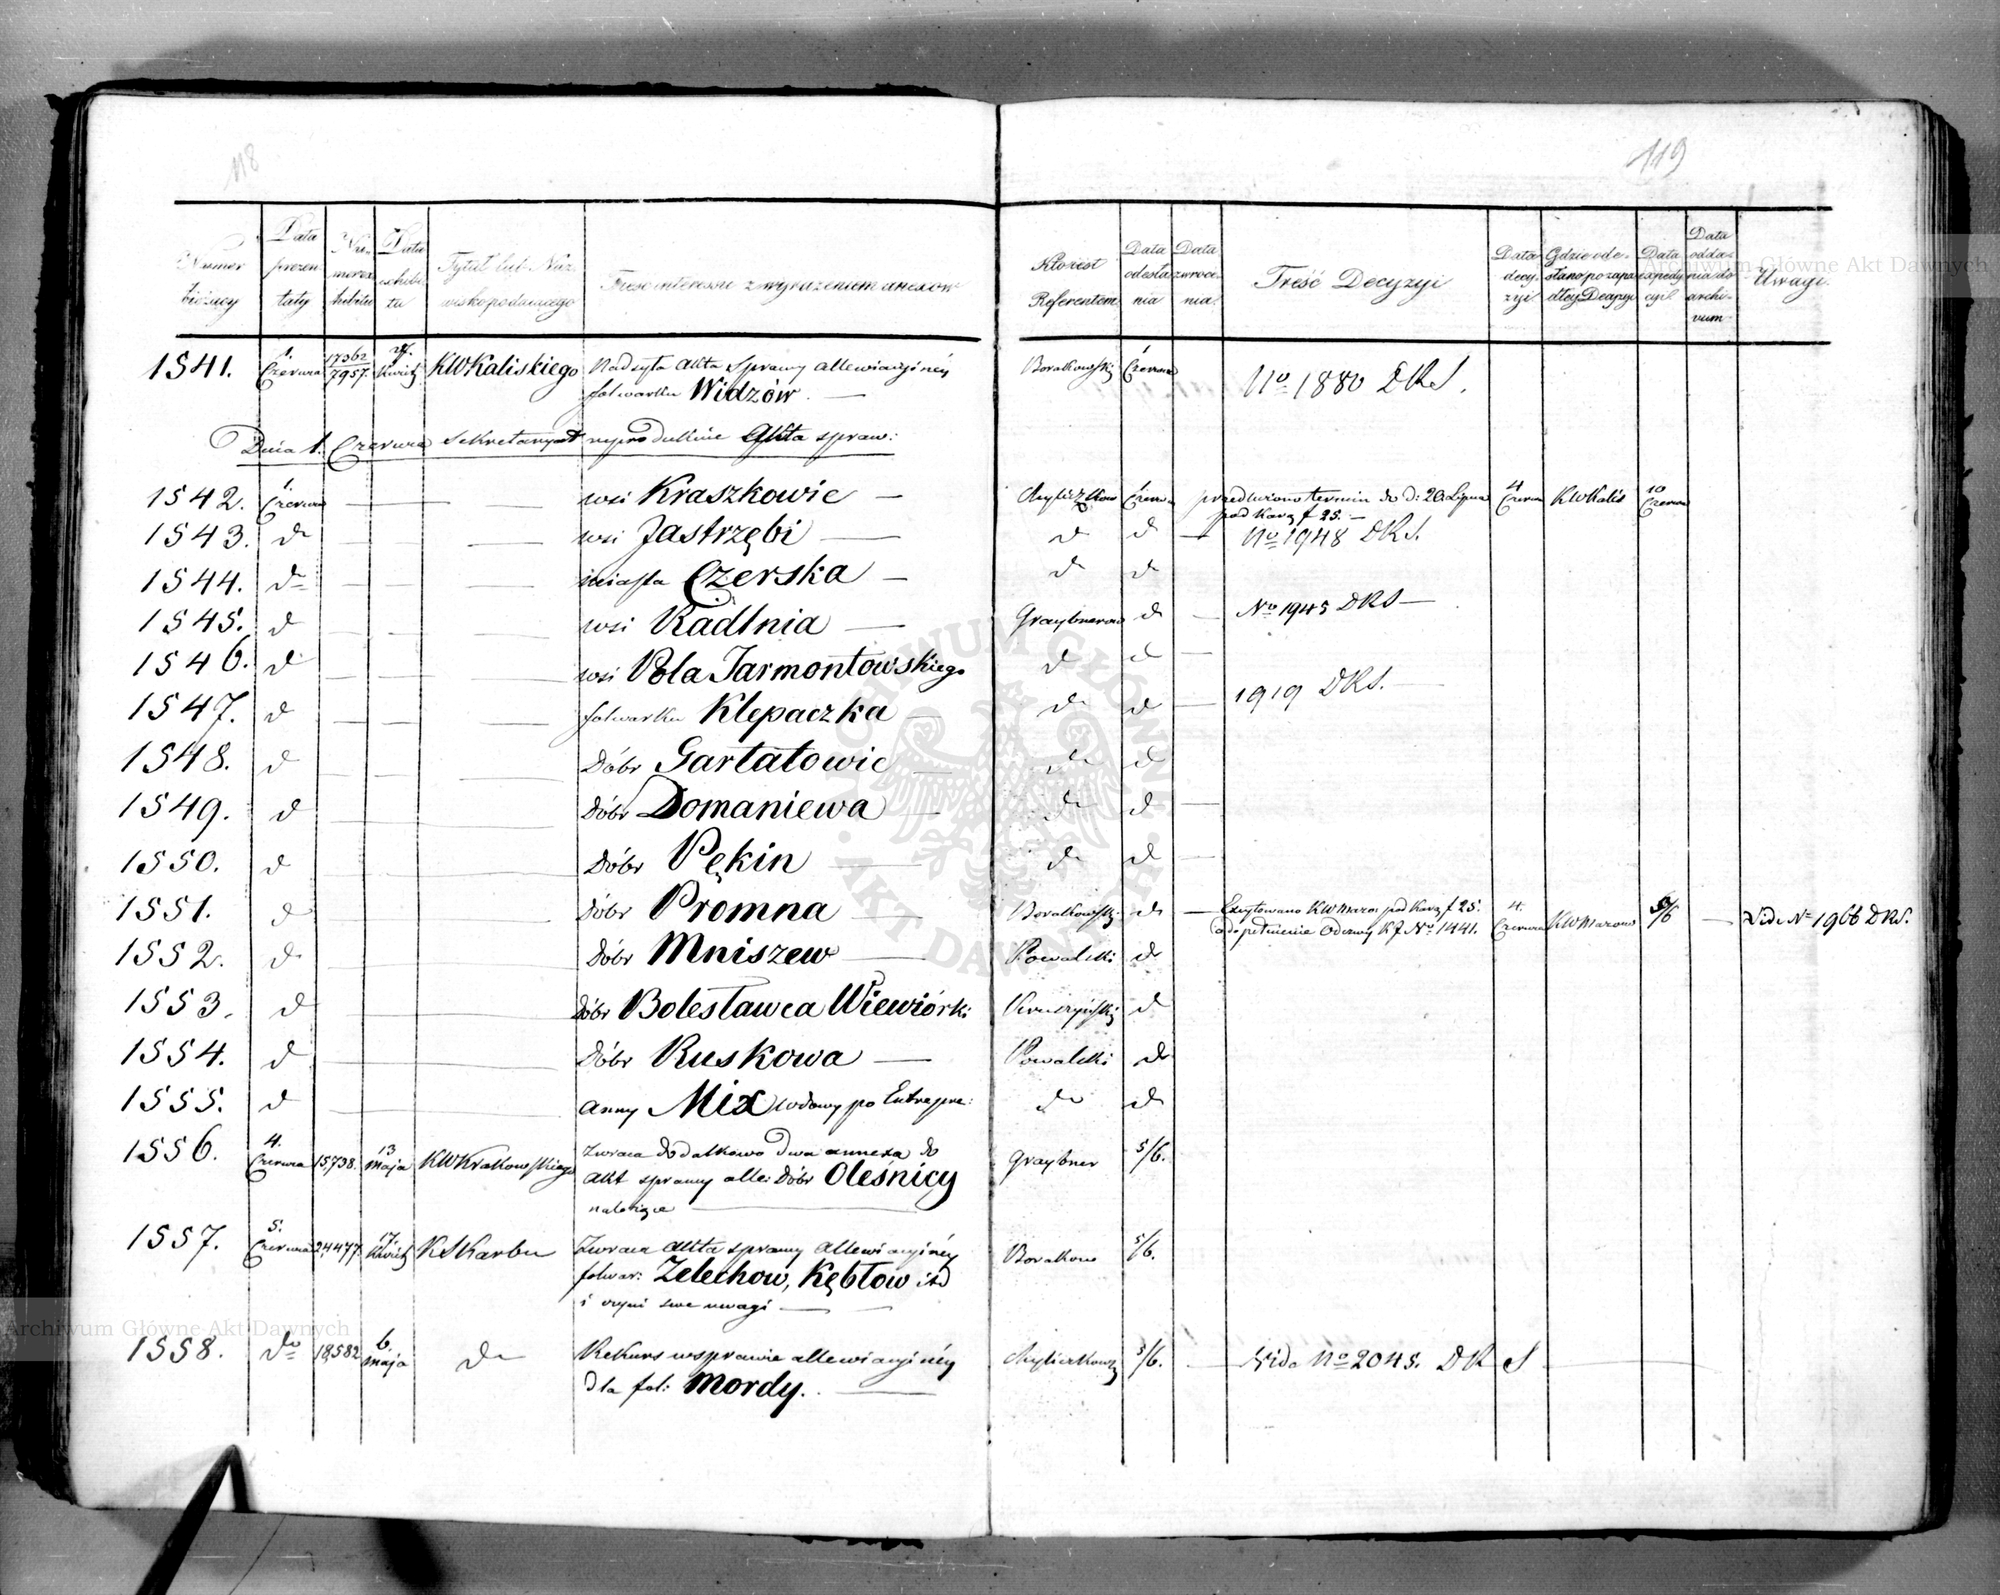 118
119
Numer bieżący | Data prezentaty | Numerex hibitu | Data exhibita | Tytuł lub Nazwisko podawcego | Treść interessu z wyrażeniem anexów | Któren jest Referentem | Data odesłania | Data zwrocenia | Treść Decyzyi | Data decyzyi | Gdzie odesłano po zapadłey Decyzyi | Data expedycyi | Data oddania do archivum | Uwagi
1541. | 1. Czerwca | 17362/7957. | Kwiet | KWKaliskiego | Nadsyła Akta sprawy allewiacyinéy | Borakowski | 1 Czerwca | No 1880 DKS.
folwarku Widzów. —
Dnia 1. Czerwca Sekretaryat reprodukuie Akta spraw:
1542. | 1. Czerwca | — | — | — | wsi Kraszkowie — | Chyliczkow | 1 Czerw | przedłużono termin do d: 20 Lipca | 4 Czerw | KWKalis | 10 Czerw
pod Karą f 25. —
1543. | d | — | — | wsi Jastrzębi — | d | d | — | No 1948 DKS.
1544. | do | — | — | — | miasta Czerska — | d | d
1545. | d | — | — | wsi Radlnia — | Graybnerow | d | — | No 1945 DKS —
1546. | d | — | — | — | wsi Pola Jarmontowskiego | d | d | —
1547. | d | — | — | — | folwarku Klepaczka — | do | d | — | 1919 DKS. —
1548. | d | — | — | — | Dóbr Gartatowic — | do | d
1549. | d | — | — | — | Dóbr Domaniewa — | do | d | —
1550. | d | — | Dóbr Pękin — | do | d | —
1551. | d | — | — | Dóbr Promna — | Borakowski | do | — | Excytowano KWMazo pod Karą f 25. | 4. Czerwca | KWMazow | 9/6 | — | Vide No 1966 DKS.
o dopełnienie Odezwy No 1441.
1552. | d | — | — | Dóbr Mniszew — | Kowalski | d
1553. | d | — | — | — | Dóbr Bolesławca Wiewiórki | d
1554. | d | — | — | Dóbr Ruskowa — | Kowalski | do
1555. | d | — | Anny Mix wdowy po Entrepre: | do | d
1556. | 4. Czerwca | 15,738. | 13 Maja | KWKrakowskiego | Zwraca dodatkowo dwa annexa do | Graybner | 5/6.
Akt sprawy alle: Dóbr Oleśnicy
należące —
1557. | 5. Czerwca | 24,477. | 17. Kwiet | KSKarbu | Zwraca Akta sprawy Allewiacyinéy | Borakow | 5/6.
folwar: Zelechow, Kębłow itd
i czyni swe uwagi —
1558. | do | 18,582 | 6. Maja | do | Rekurs wsprawie allewiacyinéy | Chyliczkow | 5/6. | — | Vide No 2045. DKS —
dla fol: Mordy. —
ARCHIWUM GŁÓWNE AKT DAWNYCH
Archiwum Główne Akt Dawnych
Archiwum Główne Akt Dawnych